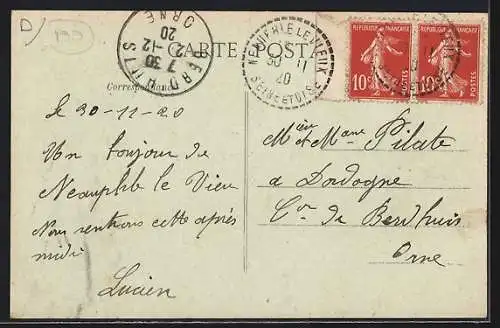 D/
199
CARTE POSTALE
Correspondance
BERD'HUIS
7 30
2-12
20
ORNE
NEAUPHLE LE VIEUX
30 11
20
SEINE ET OISE
REPUBLIQUE FRANÇAISE
10c
POSTES
REPUBLIQUE FRANÇAISE
10c
POSTES
le 30-11-20
Un bonjour de
Neauphle le Vieu
Nous rentrons cette après
midi
Lucien
Mr et Mme Pilate
a Dordogne
Cne de Berdhuis
Orne